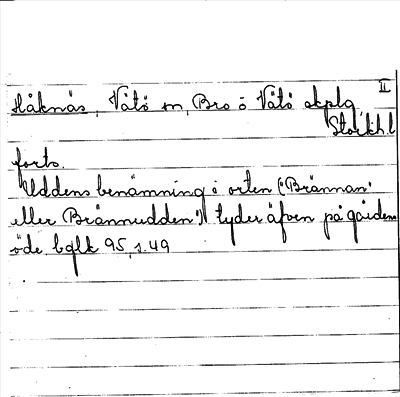 II
Håknäs, Vätö sn, Bro o Vätö skplg
Stockh.l
forts.
Uddens benämning i orten ("Brännan"
eller Brännudden") tyder äfven på gårdens
öde bglk 95, s. 49